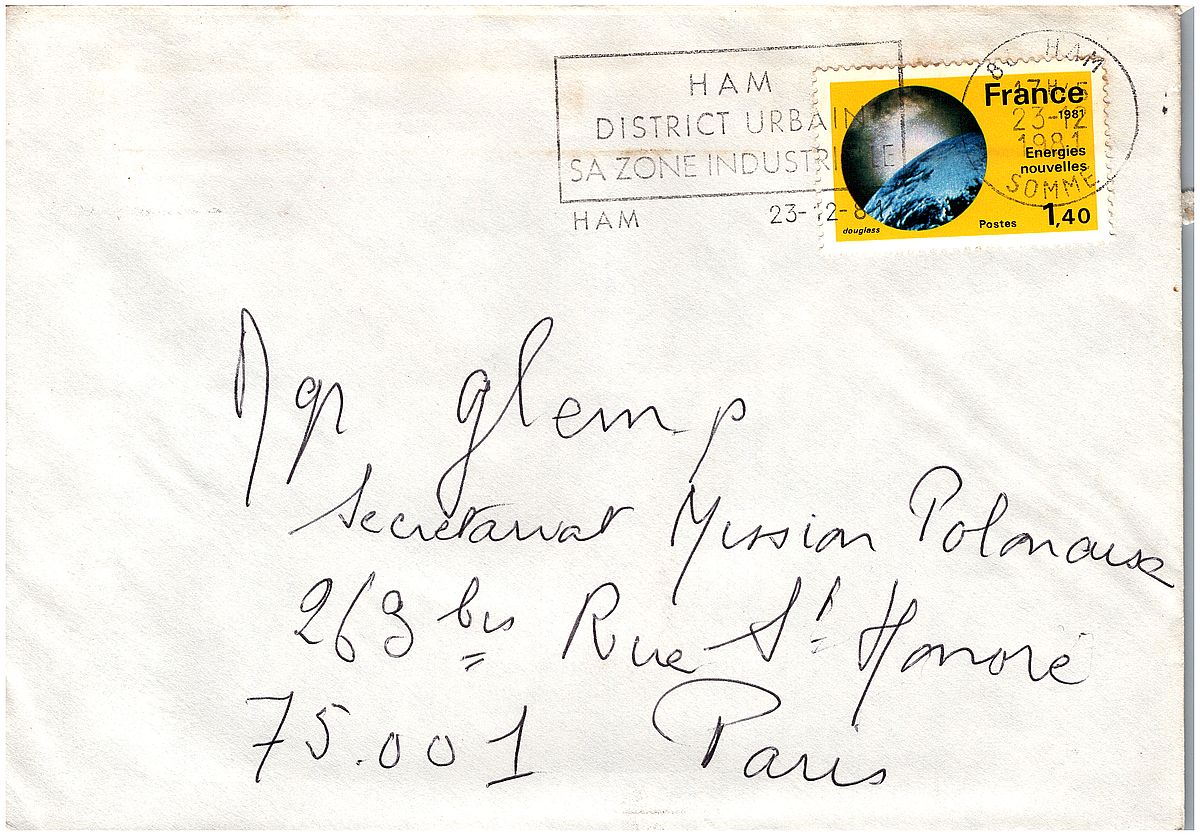 HAM
DISTRICT URBAIN
SA ZONE INDUSTRIELLE
HAM 23-12-81
80 HAM
17H45
23-12
1981
SOMME
France
1981
Energies
nouvelles
Postes 1,40
douglass
Mgr glemp
Secrétariat Mission Polonaise
263 bis Rue St Honoré
75.001 Paris